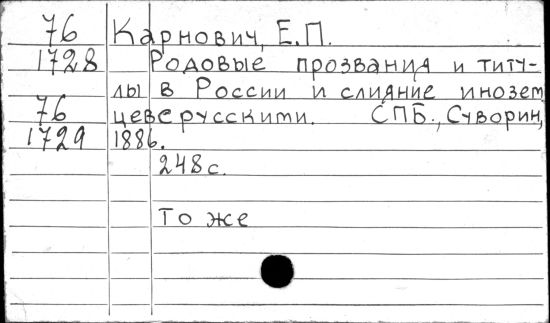 76 Карнович, Е.П.
1728 Родовые прозвания и титу-
лы в России и слияние инозем
76 цев с русскими. СПБ., Суворин,
1729 1886.
248 с.
То же